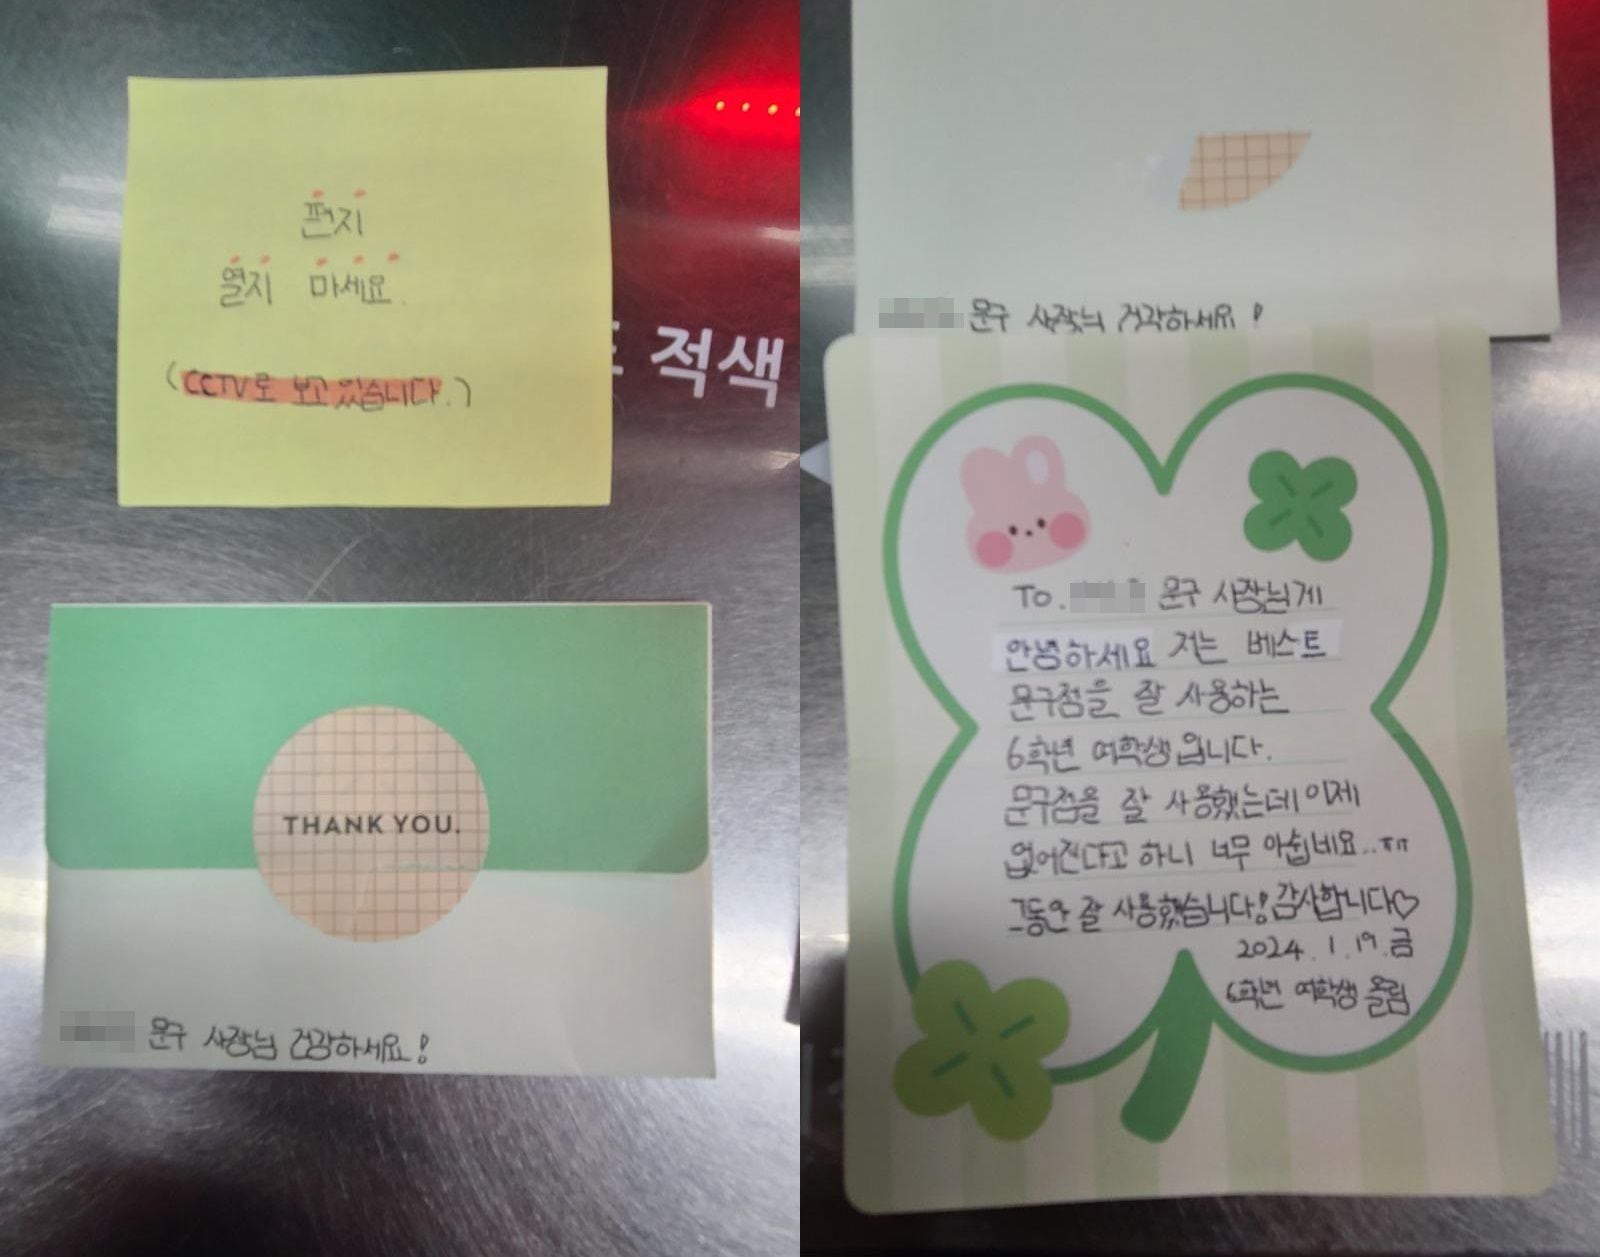 편지
열지 마세요.
(CCTV로 보고 있습니다.)
적색
THANK YOU.
문구 사장님 건강하세요!
문구 사장님 건강하세요!
To. 문구 사장님게
안녕하세요 저는 베스트
문구점을 잘 사용하는
6학년 여학생입니다.
문구점을 잘 사용했는데 이제
없어진다고 하니 너무 아쉽네요..ㅠㅠ
그동안 잘 사용했습니다! 감사합니다♡
2024. 1. 19. 금
6학년 여학생 올림